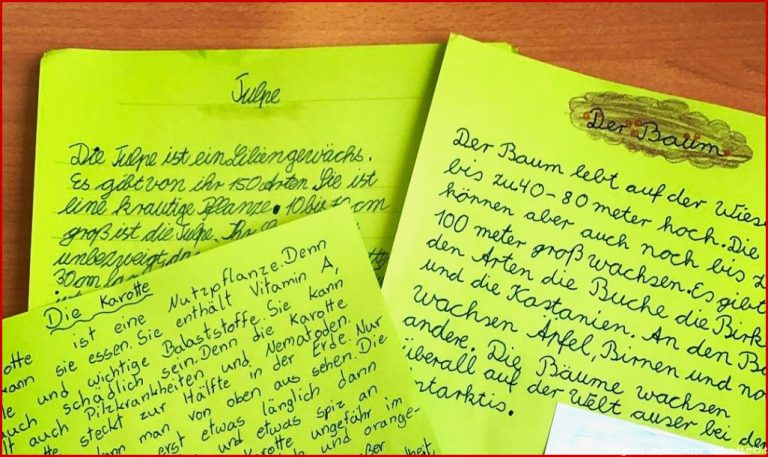 Tulpe
Die Tulpe ist ein Liliengewächs.
Es gibt von ihr 150 Arten. Sie ist
eine krautige Pflanze. 10 bis 70 cm
groß ist die Tulpe. Ihr
unberzweigt, da
30 cm lan
Der Baum
Der Baum lebt auf der Wiese
bis zu 40-80 meter hoch. Die
können aber auch noch bis z
100 meter groß wachsen. Es gibt
den Arten die Buche die Birk
und die Kastanien. An den Ba
wachsen Äpfel, Birnen und no
andere. Die Bäume wachsen
überall auf der Welt auser bei de
ntarktis.
Die Karotte
otte ist eine Nutzpflanze. Denn
ann sie essen. Sie enthält Vitamin A,
le und wichtige Balaststoffe. Sie kann
auch schädlich sein. Denn die Karotte
lt auch Pilzkrankheiten und Nematoden.
tte steckt zur Hälfte in der Erde. Nur
ann man von oben aus sehen. Die
erst etwas länglich dann
und etwas spiz an
Karotte ungefähr im
und orange-